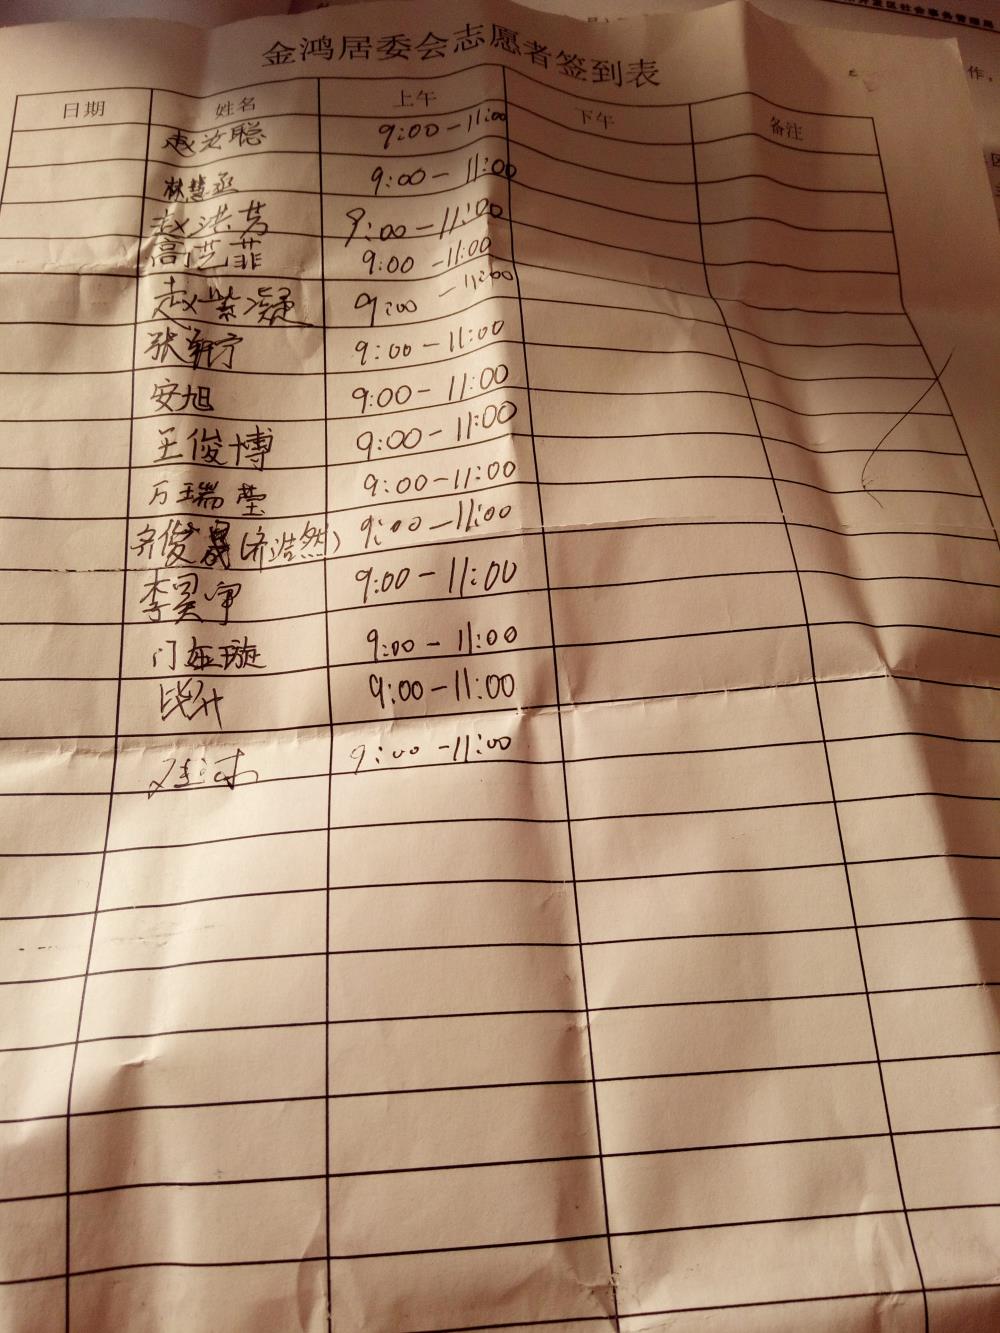 金鸿居委会志愿者签到表
日期 姓名 上午 下午 备注
赵汝聪 9:00-11:00
林慧丞 9:00-11:00
赵洪芳 9:00-11:00
高艺菲 9:00-11:00
赵紫凝 9:00-11:00
张轩宁 9:00-11:00
安旭 9:00-11:00
王俊博 9:00-11:00
万瑞莹 9:00-11:00
齐俊晟(齐浩然) 9:00-11:00
李昊宇 9:00-11:00
门亚璇 9:00-11:00
毕升 9:00-11:00
9:00-11:00
区社会事务管理局
作，